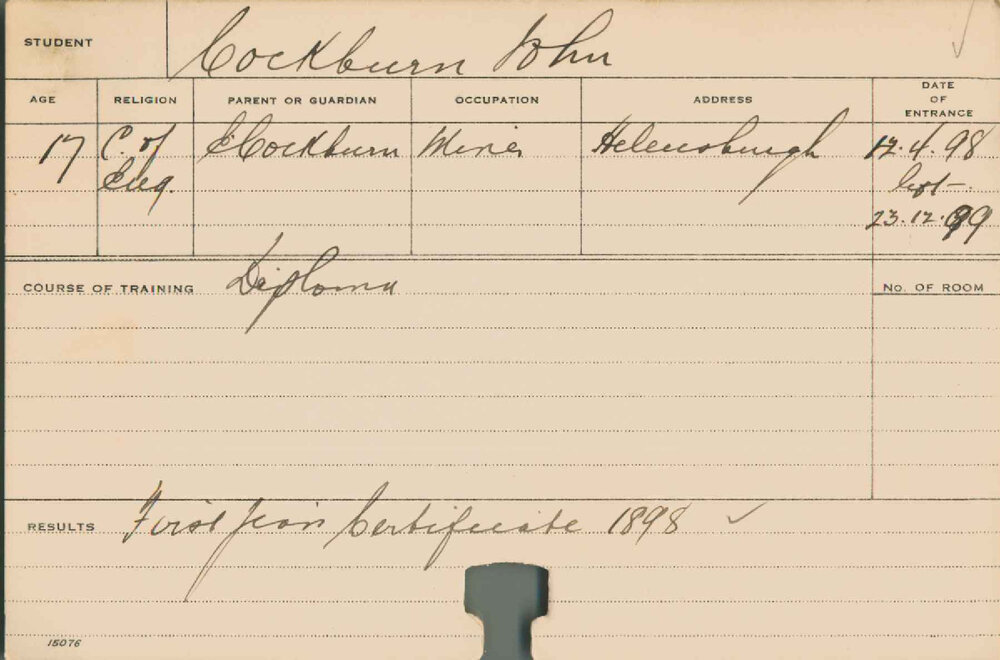 STUDENT Cockburn John
AGE RELIGION PARENT OR GUARDIAN OCCUPATION ADDRESS DATE OF ENTRANCE
17 C. of E Cockburn Miner Helensburgh 12.4.98
Eng. left-.
23.12.99
COURSE OF TRAINING Diploma No. OF ROOM
RESULTS First Year's Certificate 1898 ✓
15076